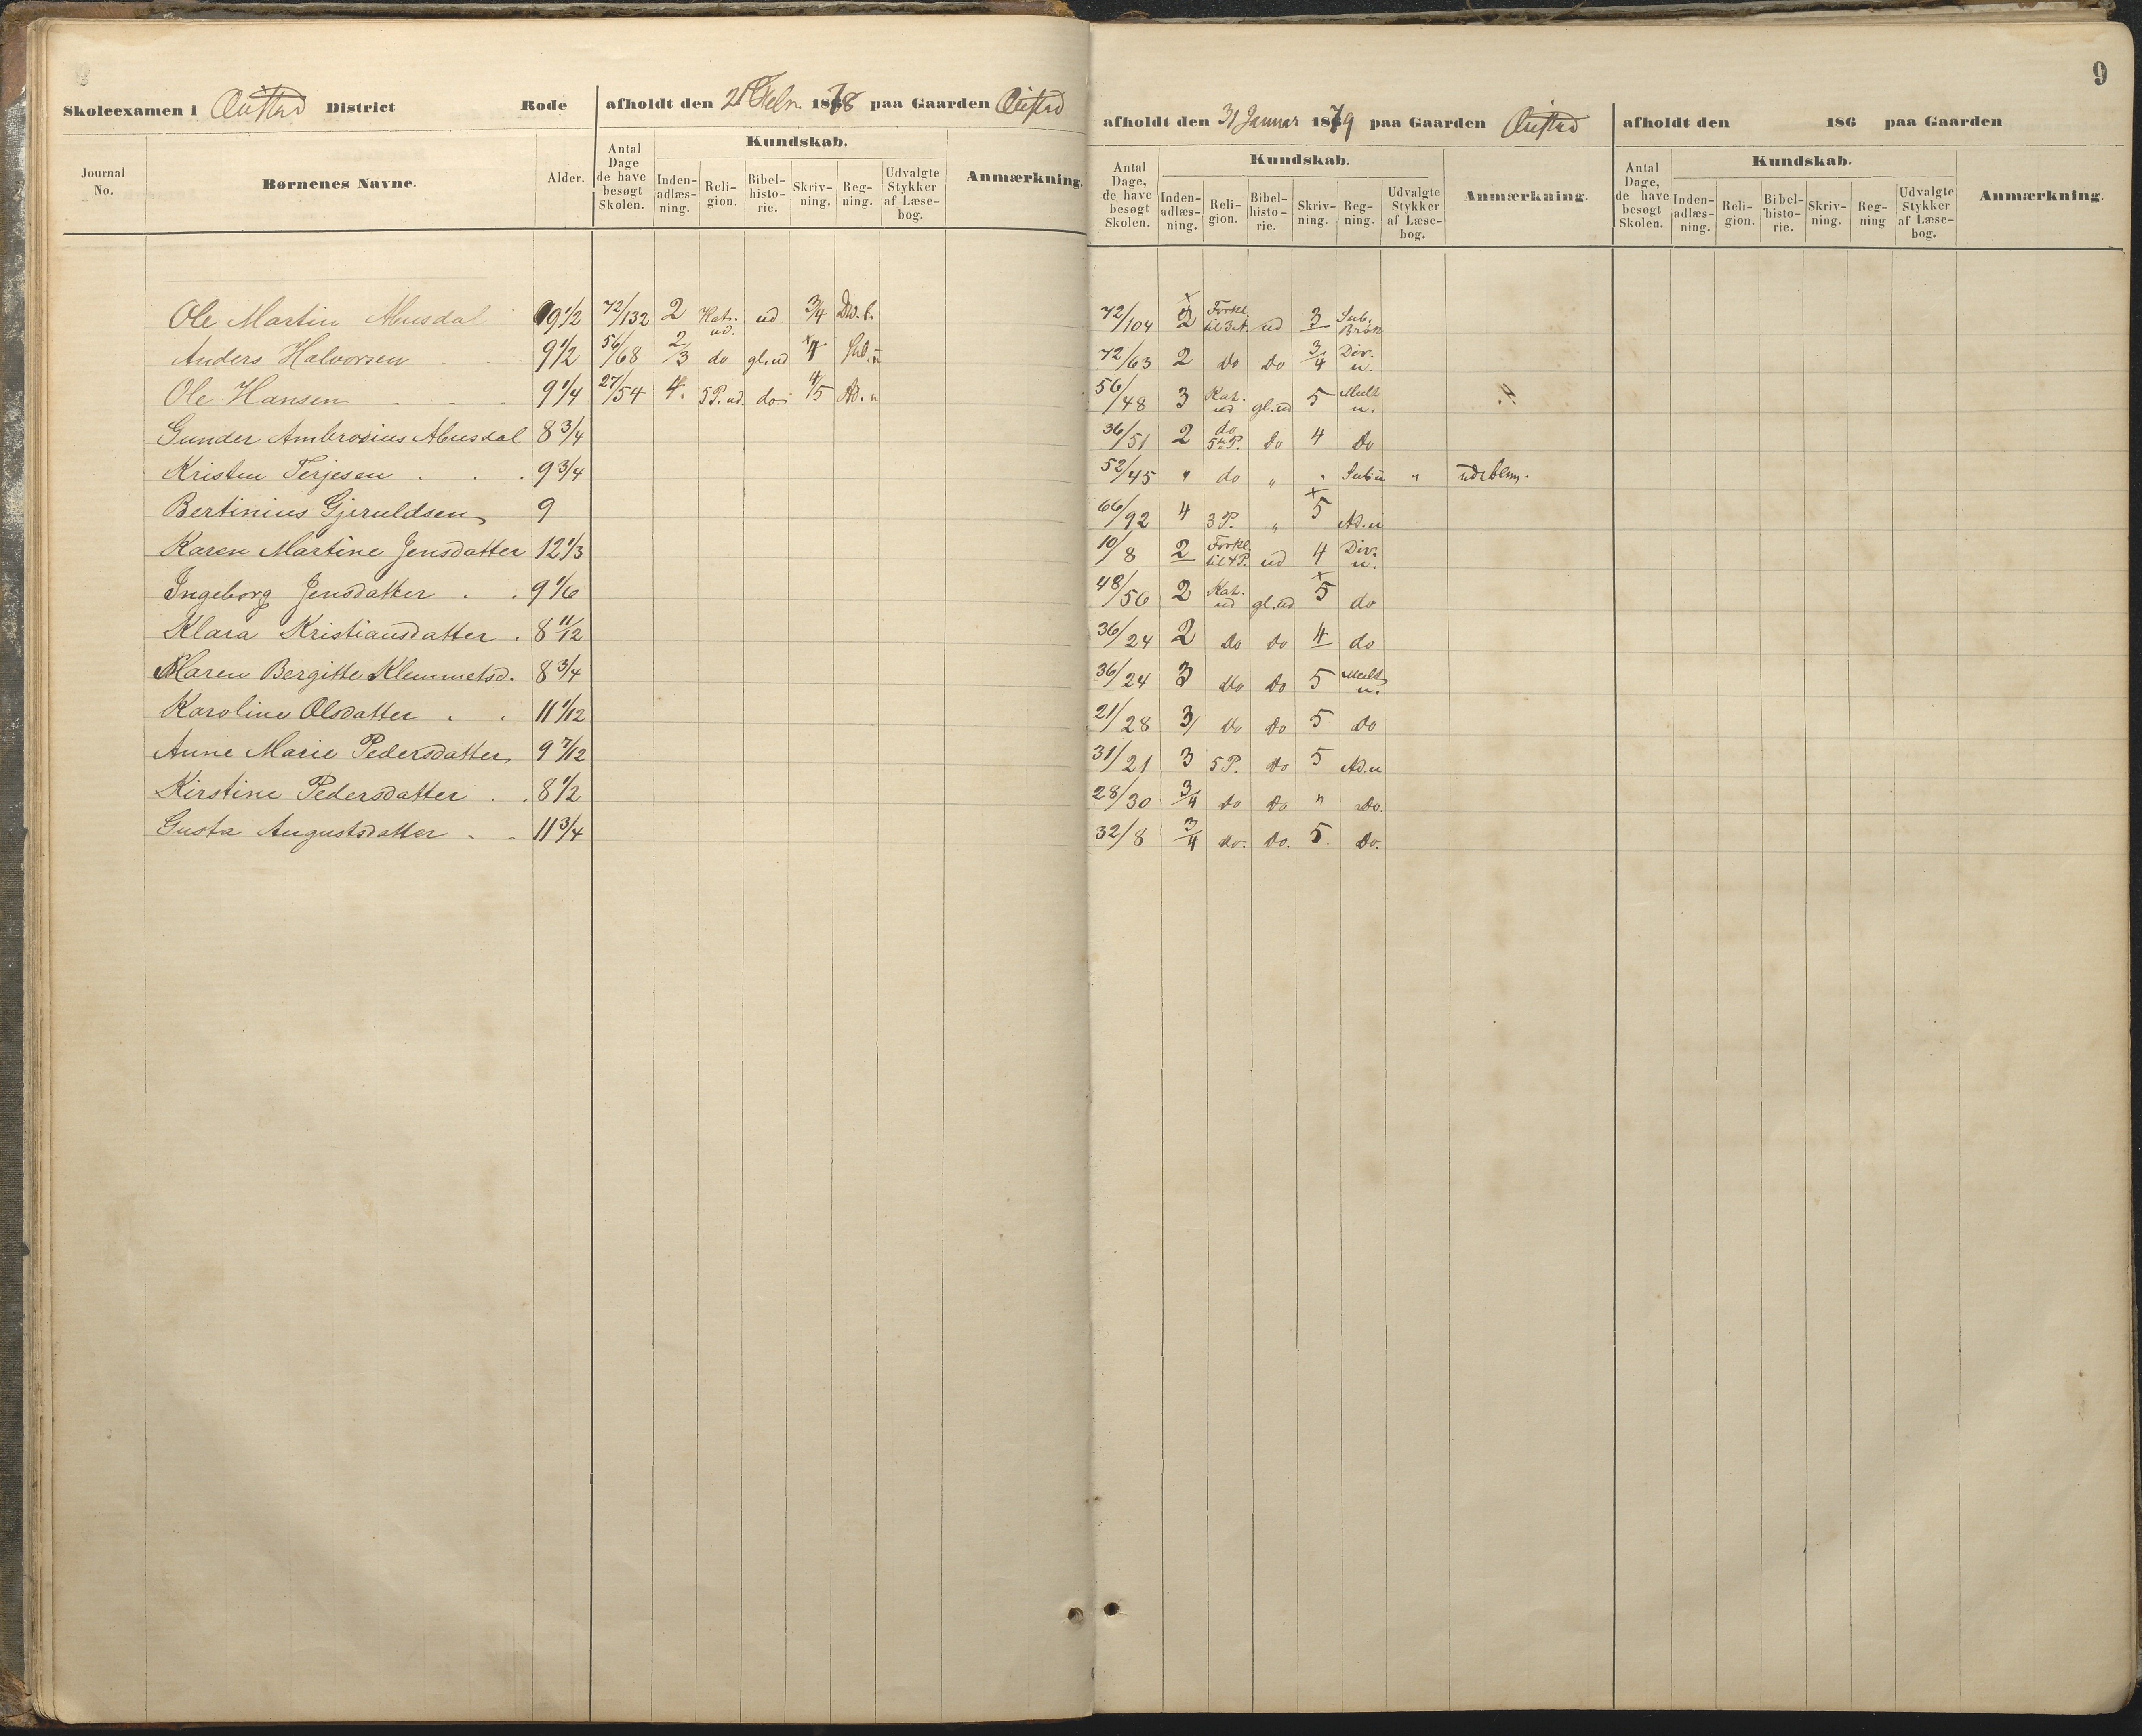 9
Skoleexamen i Østad District Rode afholdt den 21 Febr. 1878 paa Gaarden Østad
afholdt den 31 Januar 1879 paa Gaarden Østad afholdt den 186 paa Gaarden
Journal No. Børnenes Navne. Alder. Antal Dage de have besøgt Skolen. Kundskab. Inden- adlæs- ning. Reli- gion. Bibel- histo- rie. Skriv- ning. Reg- ning. Udvalgte Stykker af Læse- bog. Anmærkning.
Antal Dage, de have besøgt Skolen. Kundskab. Inden- adlæs- ning. Reli- gion. Bibel- histo- rie. Skriv- ning. Reg- ning. Udvalgte Stykker af Læse- bog. Anmærkning.
Antal Dage, de have besøgt Skolen. Kundskab. Inden- adlæs- ning. Reli- gion. Bibel- histo- rie. Skriv- ning. Reg- ning Udvalgte Stykker af Læse- bog. Anmærkning.
Ole Martin Abusdal 9 1/2 72/132 2 Kat. ud. ud. 3/4 Div. b. 72/104 2 Forkl. til 3 A. ud 3 Sub. Brøk
Anders Halvorsen 9 1/2 56/68 2/3 do gl. ud 4 Sub. u 72/63 2 Do Do 3/4 Div. u.
Ole Hansen 9 1/4 27/54 4. 5 P. ud. do 4/5 Ad. u 56/48 3 Kat. ud gl. ud 5 Mult u.
Gunder Ambrosius Abusdal 8 3/4 36/51 2 do 5te P. Do 4 Do
Kristen Terjesen 9 3/4 52/45 " do " " Sub u " udebl.
Bertinius Gjeruldsen 9 66/92 4 3 P. " 5 Ad. u
Karen Martine Jensdatter 12 1/3 10/8 2 Forkl. til 4 P. ud 4 Div. u.
Ingeborg Jensdatter 9 1/6 48/56 2 Kat. ud gl. ud 5 do
Klara Kristiansdatter 8 11/12 36/24 2 Do Do 4 do
Maren Bergitte Klemmetsd. 8 3/4 36/24 3 Do Do 5 Mult u.
Karoline Olsdatter 11 1/12 21/28 3 Do Do 5 Do
Anne Marie Pedersdatter 9 7/12 31/21 3 5 P. Do 5 Ad. u
Kirstine Pedersdatter 8 1/2 28/30 3/4 Do Do " Do.
Gusta Augustsdatter 11 3/4 32/8 3/4 do. Do. 5. Do.